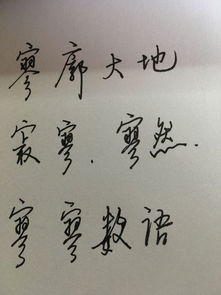 寥廓大地
寂寥、寥然.
寥寥数语